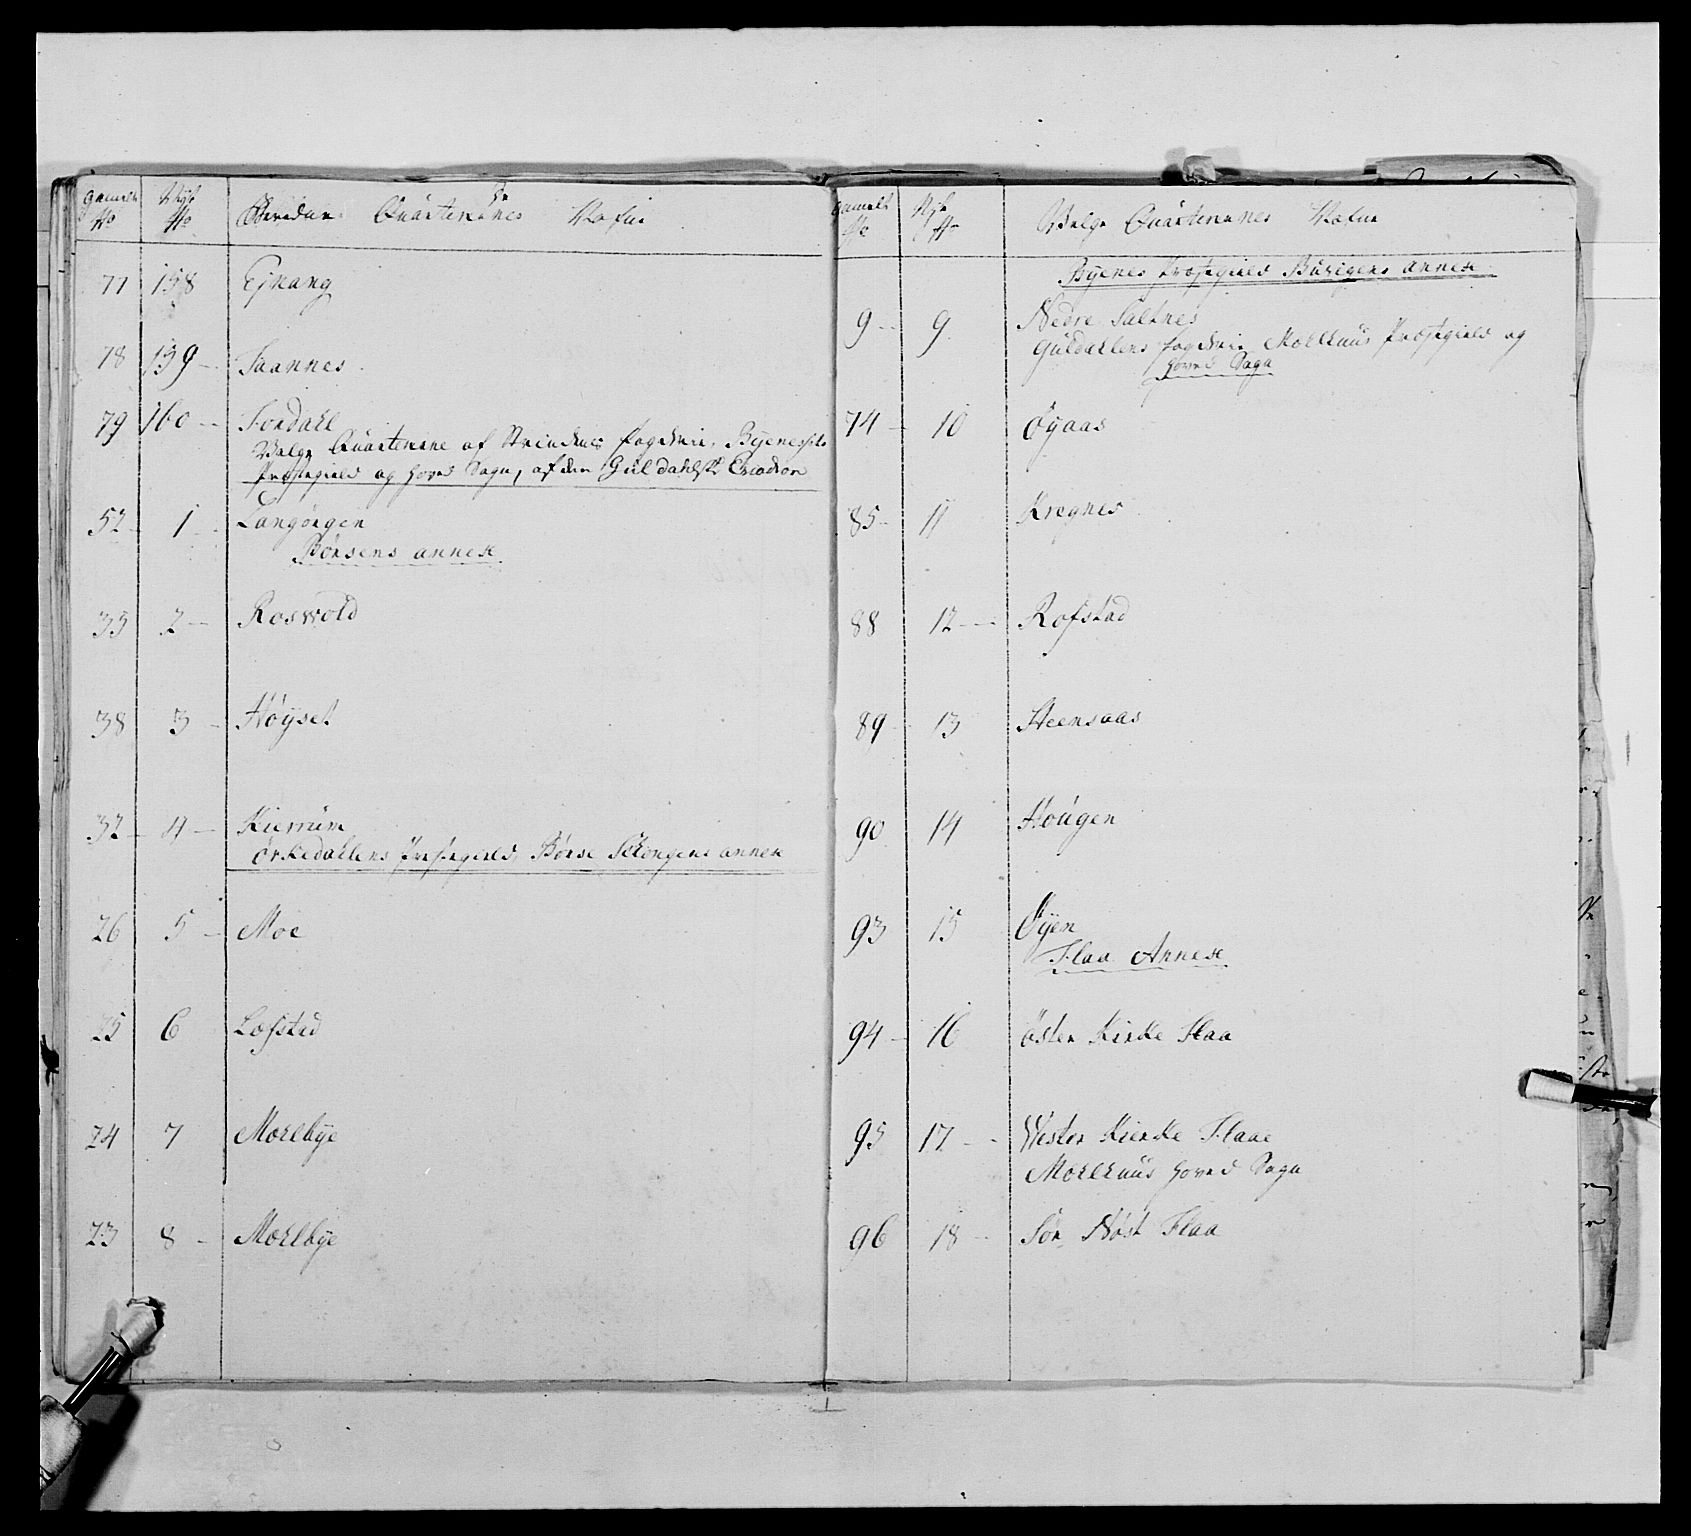 gamelt No | Nye No | Quarterernes Nafne
77 158 Ejnang
78 159 Saannes
79 160 Fordahl
Walge Quarterene af Strindens fogderie, Byenessets
Præstegield og Hoved Sogn, af den Guldahlske Esvadron
52 1 Langørgen
Børsens annex
33 2 Roswold
38 3 Høÿset
32 4 Kierrum
Ørkedahlens Præstegield, Børse Schougens annex
26 5 Moe
25 6 Lofstad
24 7 Moelbÿe
23 8 Moelbÿe
gamelt No | Nye No | Walge Quarterernes Nafne
Byenes Præstegield Buvigens annex
9 9 Nedre Saltnes
Guldahlens fogderie Moelhuus Præstegield og
Hoved Sogn
74 10 Øÿaas
85 11 Kregnes
88 12 Rofstad
89 13 Steensaas
90 14 Hougen
93 15 Øÿen
Flaa Annex
94 16 Øster Kirke Flaa
95 17 Wester Kierke Flaae
Moelhuus Hoved Sogn
96 18 Sør Nøst Flaa